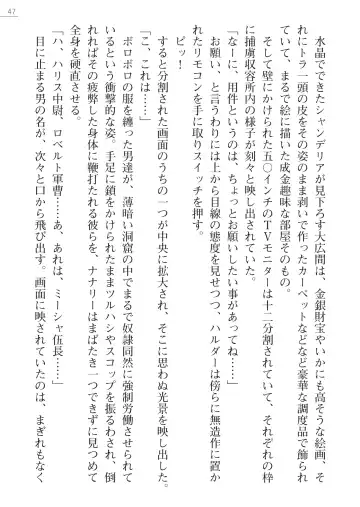 47
水晶でできたシャンデリアが見下ろす大広間は、金銀財宝やいかにも高そうな絵画、そ
れにトラ一頭の皮をその姿のまま剥いで作ったカーペットなどなど豪華な調度品で飾られ
ていて、まるで絵に描いた成金趣味な部屋そのもの。
そして壁にかけられた五〇インチのＴＶモニターは十二分割されていて、それぞれの枠
に捕虜収容所内の様子が刻々と映し出されていた。
「なーに、用件というのは、ちょっとお願いしたい事があってね――」
お願い、と言うわりには上から目線の態度を見せつつ、ハルダーは傍らに無造作に置か
れたリモコンを手に取りスイッチを押す。
ピッ！
すると分割された画面のうちの一つが中央に拡大され、そこに思わぬ光景を映し出した。
「こ、これは……」
ボロボロの服を纏った男達が、薄暗い洞窟の中でまるで奴隷同然に強制労働させられて
いるという衝撃的な姿。手足に鎖をかけられたままツルハシやスコップを振るわされ、倒
れればその疲弊した身体に鞭打たれる彼らを、ナナリーはまばたき一つできずに見つめて
全身を硬直させる。
「ハ、ハリス中尉、ロベルト軍曹……あ、あれは、ミーシャ伍長……」
目に止まる男の名が、次々と口から飛び出す。画面に映されていたのは、まぎれもなく